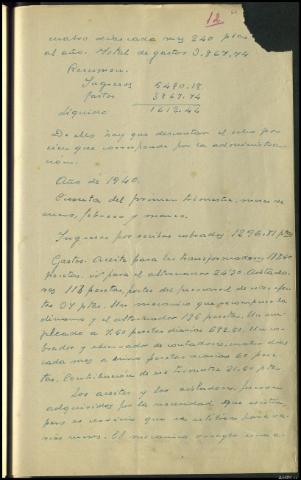 12
cuatro dias cada mes 240 ptas
al año. Total de gastos 3.867,74
Resumen.
Ingresos 5480.18
Gastos 3867.74
Líquido 1612.44
De ellos hay que descontar el ocho por
cien que corresponde por la administra-
ción.
Año de 1940.
Cuenta del primer trimestre, meses de
enero, febrero y marzo.
Ingresos por recibos cobrados, 1296.81 ptas
Gastos. Aceite para los transformadores
pesetas, id para el alternador 26.30
118 pesetas, portes del ferrocarril de
Un mecanico que recompuso la
dinamo y el alternador 136 pesetas. Un em-
pleado a 7.50 pesetas diarias 682.50. Un co-
brador y observador de contadores, cuatro dias
cada mes a cinco pesetas diarias 60 pese-
tas. Contribución de un trimestre 21.60 ptas
Los aceites y los aisladores fueron
adquiridos por la necesidad que existia
pero es servicio que se utiliza para va-
rios meses. El mecanico